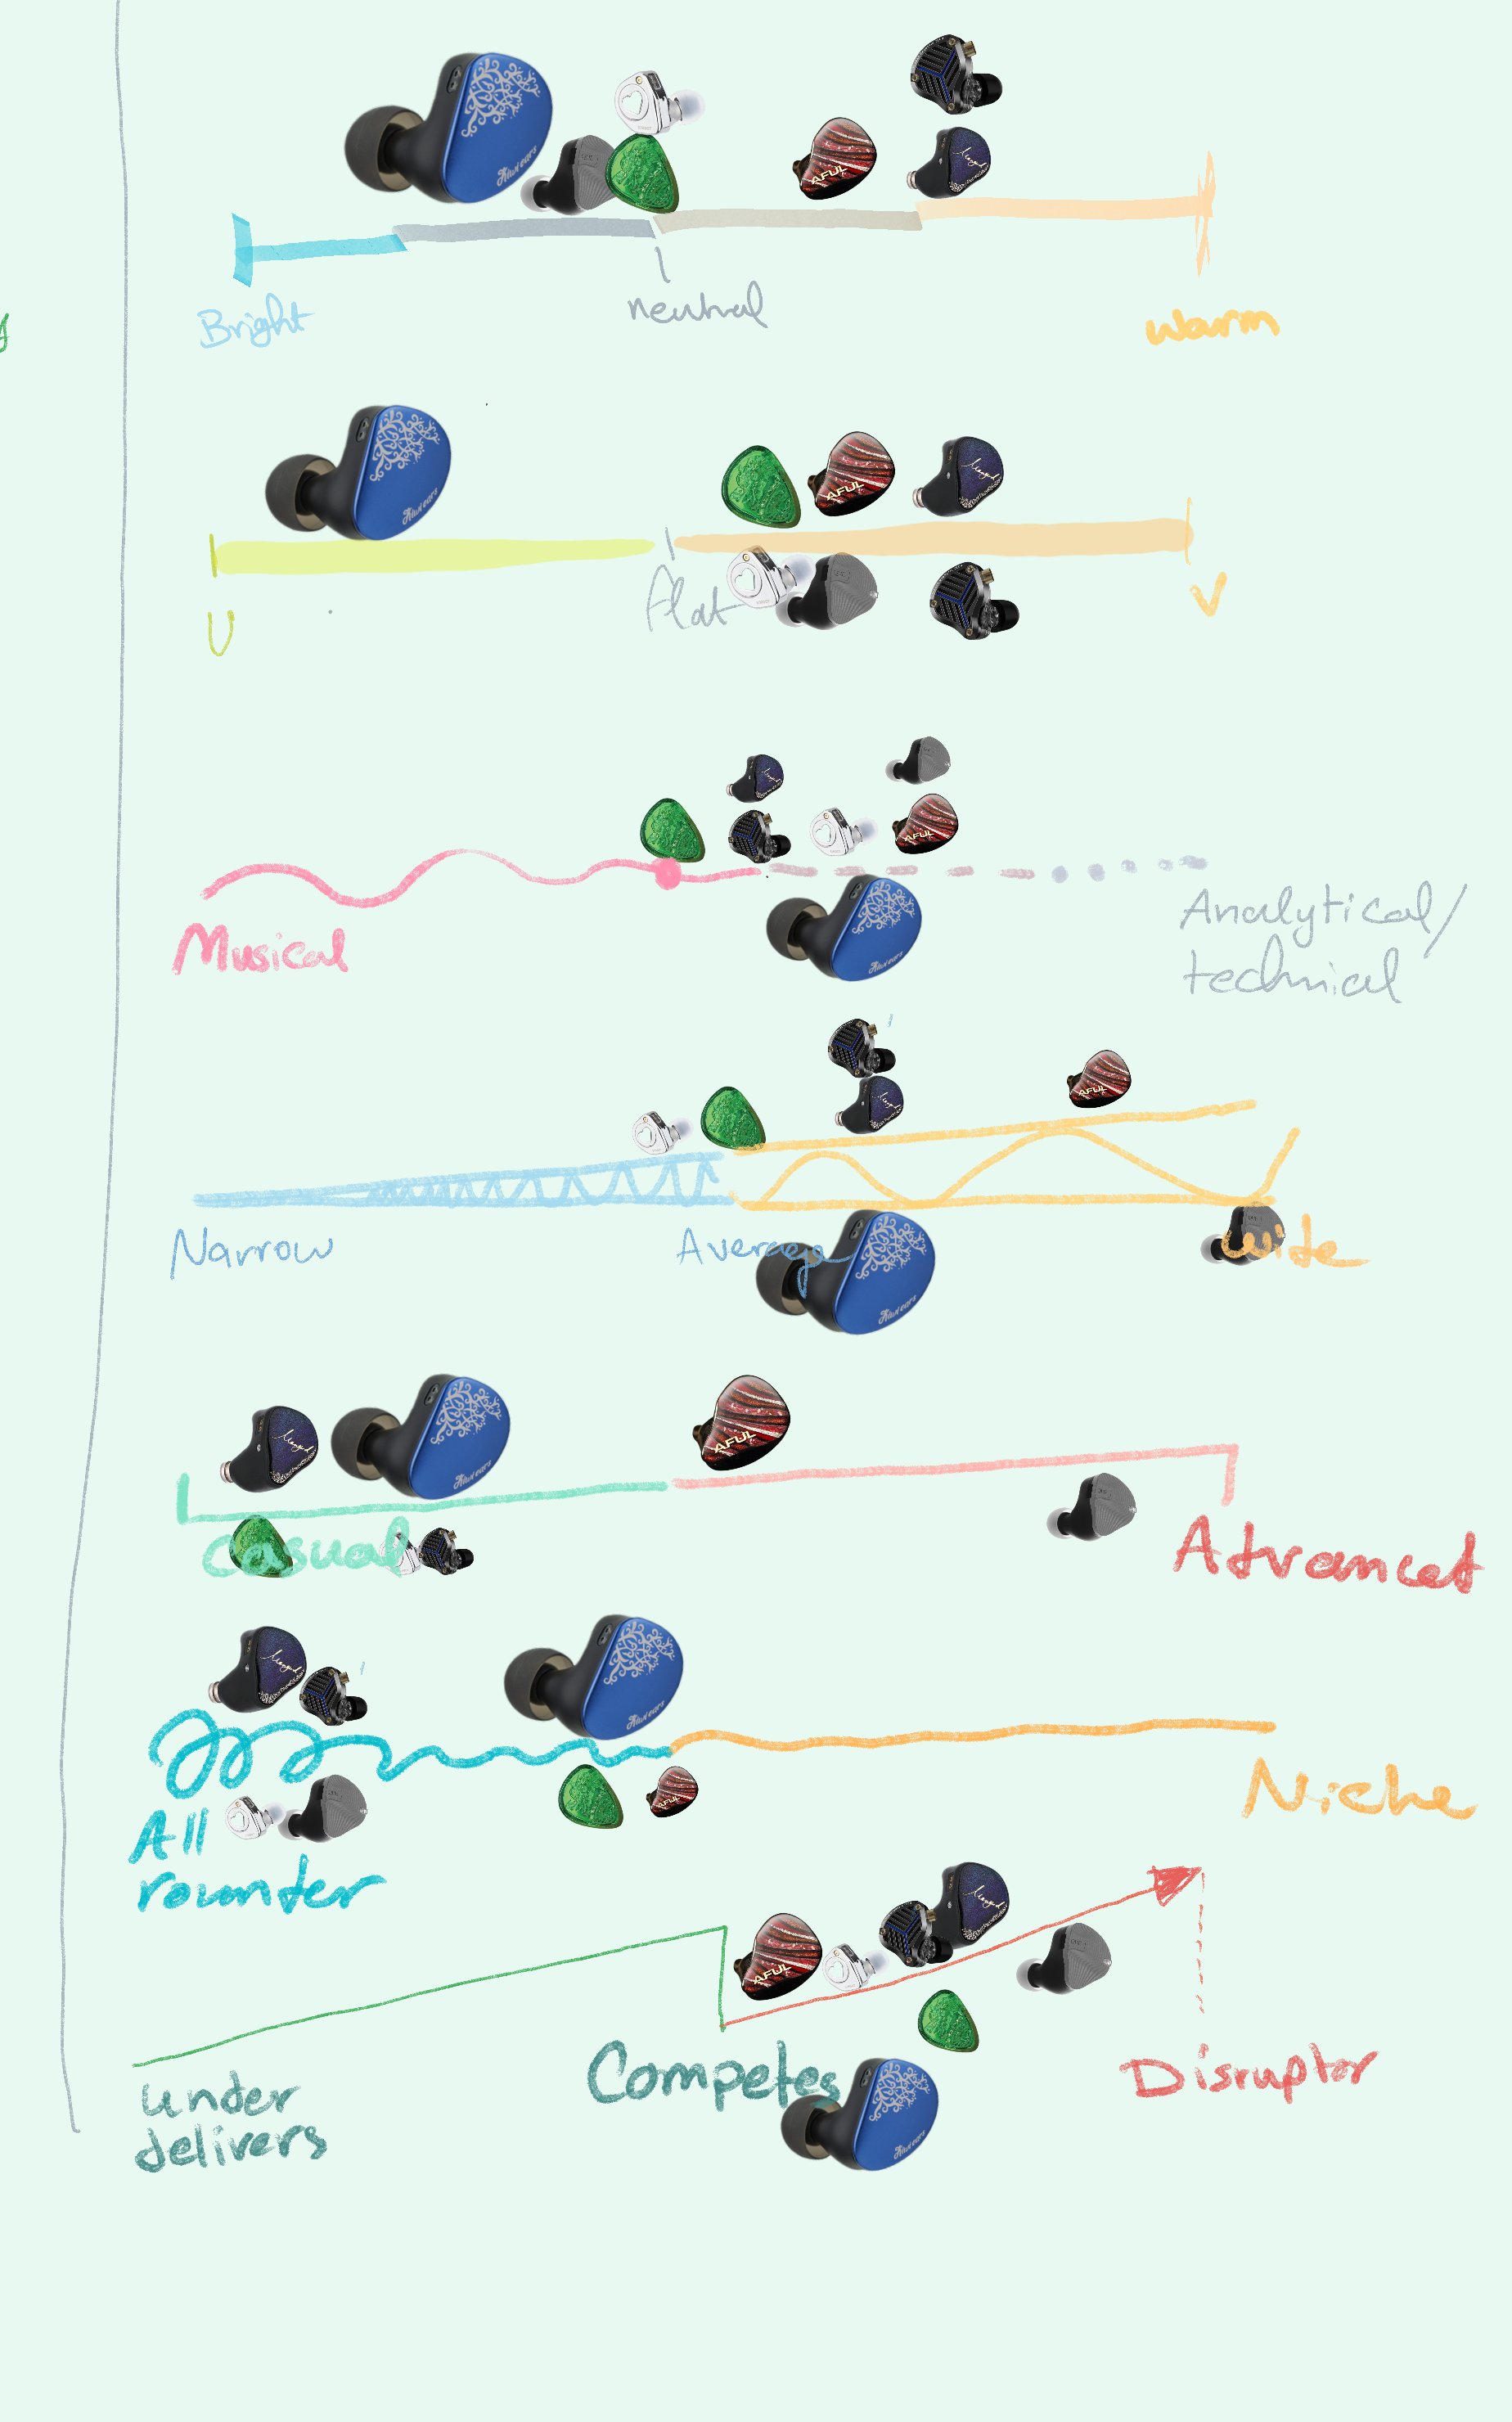 Bright
neutral
warm
U
flat
V
Musical
Analytical/
technical
Narrow
Average
wide
Casual
Advanced
All
rounder
Niche
under
delivers
Competes
Disruptor
AFUL
AFUL
AFUL
AFUL
AFUL
AFUL
AFUL